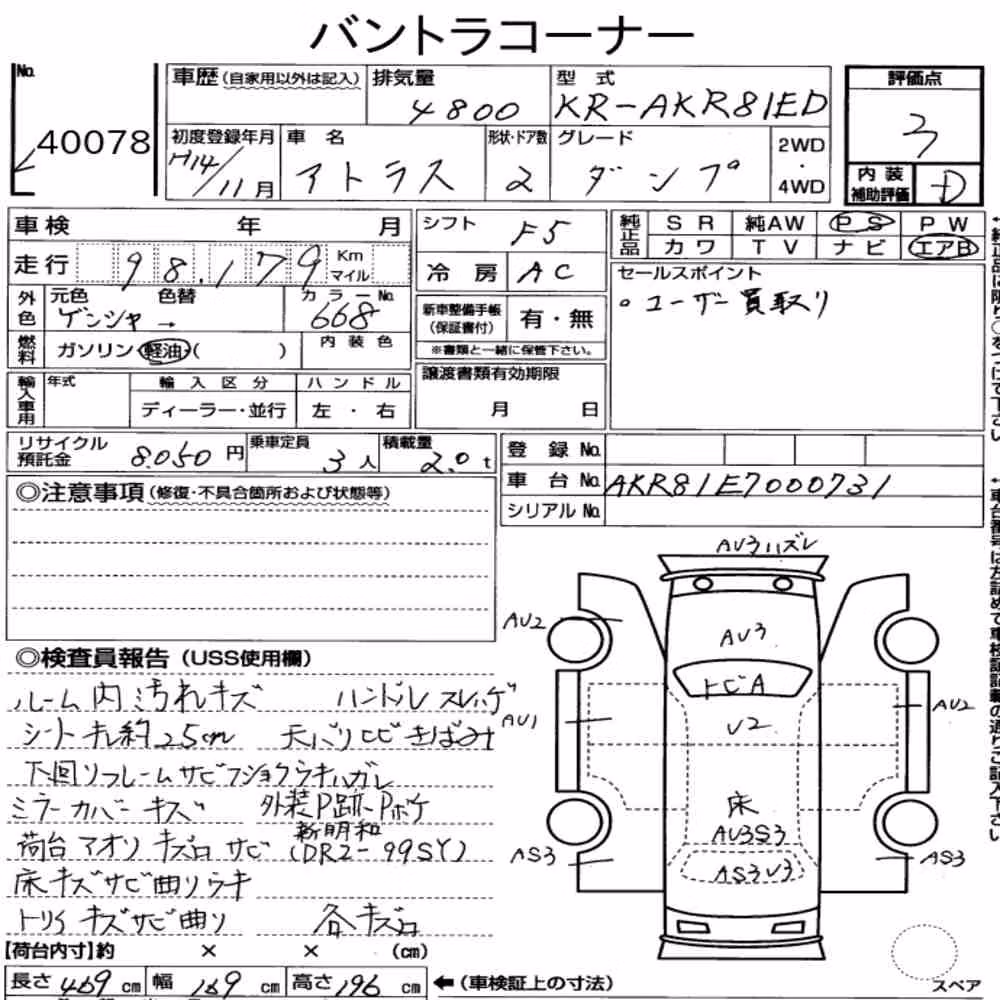 バントラコーナー
No.
40078
車歴(自家用以外は記入)
排気量
4800
型 式
KR-AKR81ED
評価点
3
初度登録年月
H14/11月
車 名
アトラス
形状・ドア数
2
グレード
ダンプ
2WD
・
4WD
内 装
補助評価
D
車検 年 月
シフト
F5
純正品
SR 純AW PS PW
カワ TV ナビ エアB
走行 98.179 Km マイル
冷 房
AC
セールスポイント
。ユーザー買取り
外色
元色 色替
ゲンシャ→
カラーNo.
668
新車整備手帳
(保証書付)
有・無
※書類と一緒に保管下さい。
燃料
ガソリン・軽油・( )
内 装 色
譲渡書類有効期限
月 日
輸入車用
年式
輸 入 区 分
ハ ン ド ル
ディーラー・並行
左 ・ 右
リサイクル
預託金
8.050 円
乗車定員
3人
積載量
2.0 t
登 録 No.
車 台 No.
AKR81E7000731
シリアル No.
◎注意事項(修復・不具合箇所および状態等)
AV3ハズレ
AU2
AV3
トビA
AU1
V2
AU2
床
AV3S3
AS3V3
AS3
AS3
◎検査員報告(USS使用欄)
ルーム内汚れキズ ハンドルスレハゲ
シートキレ約25cm 天バリヒビきばみ
下回りフレームサビフショクウキハガレ
ミラーカバーキズ 外装P跡-Pボケ
新明和
荷台アオリキズロサビ (DR2-99SY)
床キズサビ曲リウキ
トリイキズサビ曲リ 各キズロ
【荷台内寸】約 × × (cm)
長さ 469 cm 幅 169 cm 高さ 196 cm ←(車検証上の寸法)
スペア